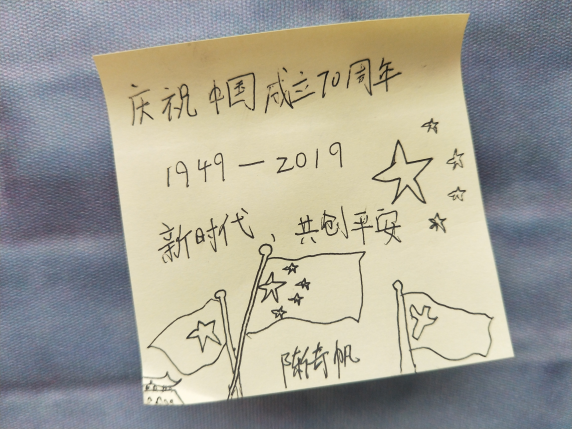 庆祝中国成立70周年
1949—2019
新时代、共创平安
陈奇帆